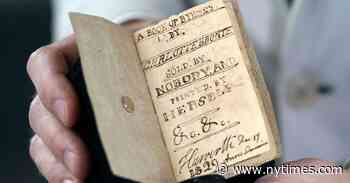 A BOOK OF RYHMES
BY
CHARLOTTE BRONTE
SOLD BY
NOBODY AND
PRINTED BY
HERSELF
&c. &c.
Haworth Dec 17
1829 Anno Domini
nytimes.com